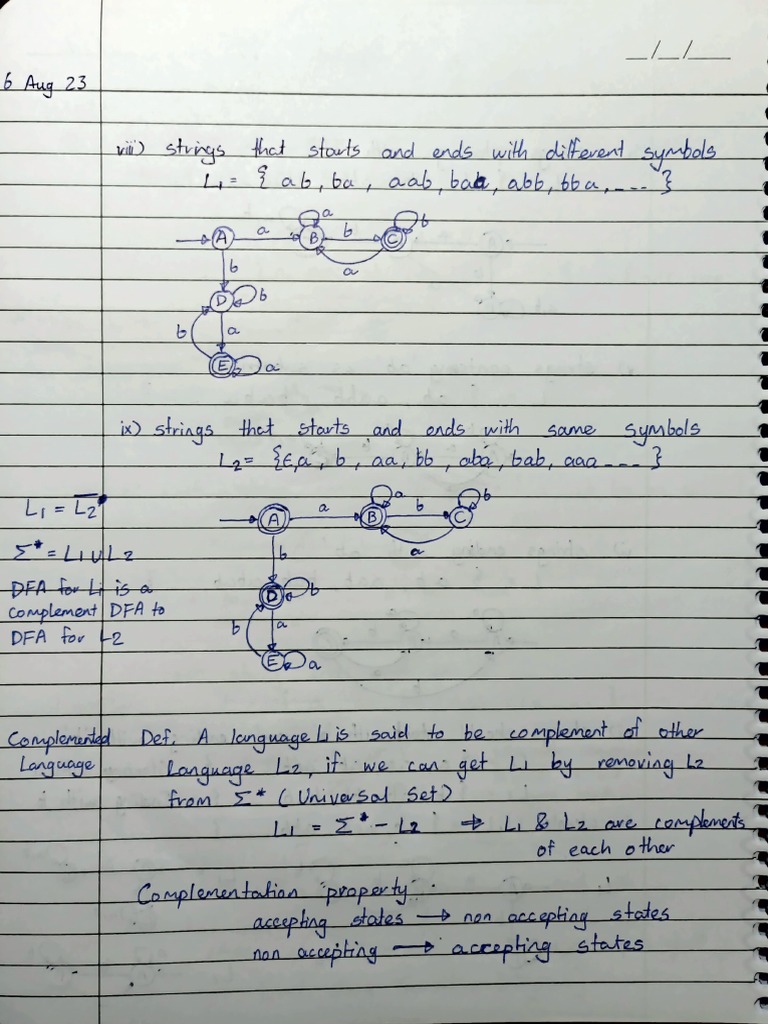 _/_/__
6 Aug 23
viii) strings that starts and ends with different symbols
L₁ = { ab, ba, aab, baa, abb, bba, ---- }
A a B a b C b
a
b
D b
b a
E a
ix) strings that starts and ends with same symbols
L₂ = {ε, a, b, aa, bb, aba, bab, aaa ---- }
L₁ = L̅₂
A a B a b C b
a
Σ* = L₁ ∪ L₂
b
DFA for L₁ is a
complement DFA to
DFA for L2
D b
b a
E a
Complemented Language
Def. A language L₁ is said to be complement of other
language L₂, if we can get L₁ by removing L₂
from Σ* (Universal Set)
L₁ = Σ* - L₂ ⇒ L₁ & L₂ are complements
of each other
Complementation property
accepting states → non accepting states
non accepting → accepting states